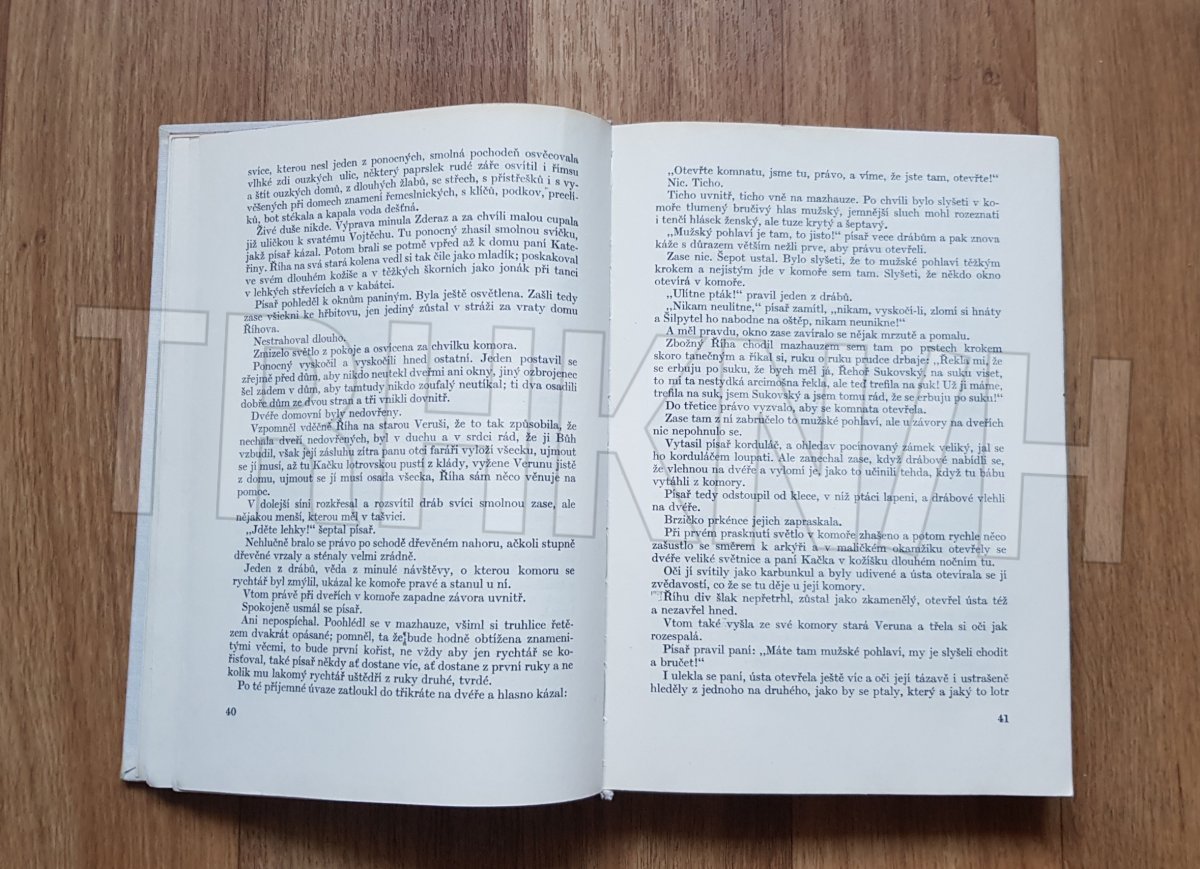 svíce, kterou nesl jeden z ponocných, smolná pochodeň osvěcovala
vlhké zdi ouzkých ulic, některý paprslek rudé záře osvítil i římsu
a štít ouzkých domů, z dlouhých žlabů, se střech, s přístřešků i s vy-
věšených při domech znamení řemeslnických, s klíčů, podkov, precli-
ků, bot stékala a kapala voda dešťná.
Živé duše nikde. Výprava minula Zderaz a za chvíli malou cupala
již uličkou k svatému Vojtěchu. Tu ponocný zhasil smolnou svíčku,
jakž písař kázal. Potom brali se potmě vpřed až k domu paní Kate-
řiny. Říha na svá stará kolena vedl si tak čile jako mladík; poskakoval
ve svém dlouhém kožiše a v těžkých škorních jako jonák při tanci
v lehkých střevících a v kabátci.
Písař pohleděl k oknům paniným. Byla ještě osvětlena. Zašli tedy
zase všickni ke hřbitovu, jen jediný zůstal v stráži za vraty domu
Říhova.
Nestrahoval dlouho.
Zmizelo světlo z pokoje a osvícena za chvilku komora.
Ponocný vyskočil a vyskočili hned ostatní. Jeden postavil se
zřejmě před dům, aby nikdo neutekl dveřmi ani okny, jiný ozbrojenec
šel zadem v dům, aby tamtudy nikdo zoufalý neutíkal; ti dva osadili
dobře dům ze dvou stran a tři vnikli dovnitř.
Dvéře domovní byly nedovřeny.
Vzpomněl vděčně Říha na starou Veruši, že to tak způsobila, že
nechala dveří nedovřených, byl v duchu a v srdci rád, že ji Bůh
vzbudil, však její zásluhu zítra panu otci faráři vyloží všecku, ujmout
se jí musí, až tu Kačku lotrovskou pustí z klády, vyžene Verunu jistě
z domu, ujmout se jí musí osada všecka, Říha sám něco věnuje na
pomoc.
V dolejší síni rozkřesal a rozsvítil dráb svíci smolnou zase, ale
nějakou menší, kterou měl v tašvici.
„Jděte lehky!“ šeptal písař.
Nehlučně bralo se právo po schodě dřevěném nahoru, ačkoli stupně
dřevěné vrzaly a sténaly velmi zrádně.
Jeden z drábů, věda z minulé návštěvy, o kterou komoru se
rychtář byl zmýlil, ukázal ke komoře pravé a stanul u ní.
Vtom právě při dveřích v komoře zapadne závora uvnitř.
Spokojeně usmál se písař.
Ani nepospíchal. Poohlédl se v mazhauze, všiml si truhlice řetě-
zem dvakrát opásané; pomněl, ta že bude hodně obtížena znameni-
tými věcmi, to bude první kořist, ne vždy aby jen rychtář se ko-
řisťoval, také písař někdy ať dostane víc, ať dostane z první ruky a ne
kolik mu lakomý rychtář uštědří z ruky druhé, tvrdé.
Po té příjemné úvaze zatloukl do třikráte na dvéře a hlasno kázal:
40
„Otevřte komnatu, jsme tu, právo, a víme, že jste tam, otevřte!“
Nic. Ticho.
Ticho uvnitř, ticho vně na mazhauze. Po chvíli bylo slyšeti v ko-
moře tlumený bručivý hlas mužský, jemnější sluch mohl rozeznati
i tenčí hlásek ženský, ale tuze krytý a šeptavý.
„Mužský pohlaví je tam, to jisto!“ písař vece drábům a pak znova
káže s důrazem větším nežli prve, aby právu otevřeli.
Zase nic. Šepot ustal. Bylo slyšeti, že to mužské pohlaví těžkým
krokem a nejistým jde v komoře sem tam. Slyšeti, že někdo okno
otevírá v komoře.
„Ulítne pták!“ pravil jeden z drábů.
„Nikam neulítne,“ písař zamítl, „nikam, vyskočí-li, zlomí si hnáty
a Šilpytel ho nabodne na oštěp, nikam neunikne!“
A měl pravdu, okno zase zavíralo se nějak mrzutě a pomalu.
Zbožný Říha chodil mazhauzem sem tam po prstech krokem
skoro tanečným a říkal si, ruku o ruku prudce drbaje: „Řekla mi, že
se erbuju po suku, že bych měl já, Řehoř Sukovský, na suku viset,
to mi ta nestydká arcimošna řekla, ale teď trefila na suk! Už ji máme,
trefila na suk, jsem Sukovský a jsem tomu rád, že se erbuju po suku!“
Do třetice právo vyzvalo, aby se komnata otevřela.
Zase tam z ní zabručelo to mužské pohlaví, ale u závory na dveřích
nic nepohnulo se.
Vytasil písař korduláč, a ohledav pocinovaný zámek veliký, jal se
ho korduláčem loupati. Ale zanechal zase, když drábové nabídli se,
že vlehnou na dvéře a vylomí je, jako to učinili tehda, když tu bábu
vytáhli z komory.
Písař tedy odstoupil od klece, v níž ptáci lapeni, a drábové vlehli
na dvéře.
Brzičko prkénce jejich zapraskala.
Při prvém prasknutí světlo v komoře zhašeno a potom rychle něco
zašustlo se směrem k arkýři a v maličkém okamžiku otevřely se
dvéře veliké světnice a paní Kačka v kožíšku dlouhém nočním tu.
Oči jí svítily jako karbunkul a byly udivené a ústa otevírala se jí
zvědavostí, co že se tu děje u její komory.
Říhu div šlak nepřetrhl, zůstal jako zkamenělý, otevřel ústa též
a nezavřel hned.
Vtom také vyšla ze své komory stará Veruna a třela si oči jak
rozespalá.
Písař pravil paní: „Máte tam mužské pohlaví, my je slyšeli chodit
a bručet!“
I ulekla se paní, ústa otevřela ještě víc a oči její tázavě i ustrašeně
hleděly z jednoho na druhého, jako by se ptaly, který a jaký to lotr
41
TRHKNIH